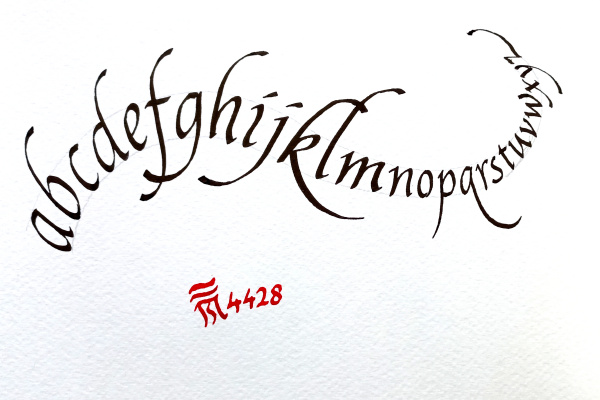 abcdefghijklmnopqrstuvwxyz
4428